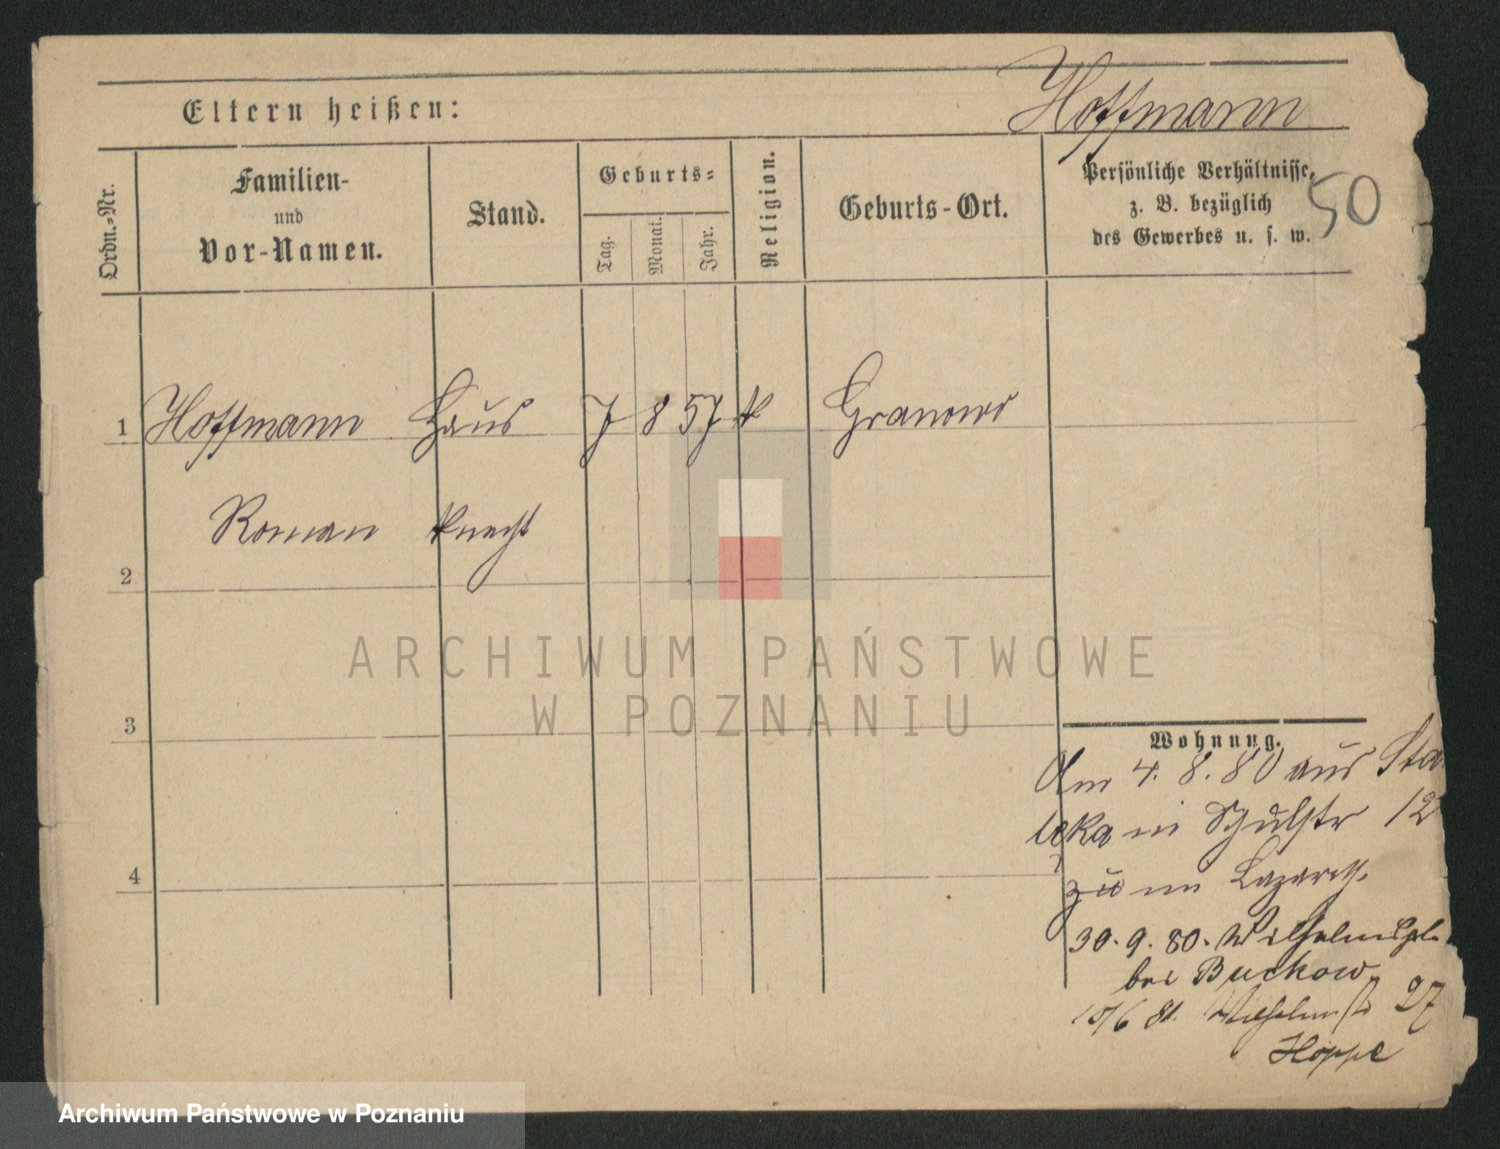 Hoffmann
Eltern heißen:
50
Ordn.-Nr.
Familien-
und
Vor-Namen.
Stand.
Geburts-
Tag.
Monat.
Jahr.
Religion.
Geburts-Ort.
Persönliche Verhältnisse,
z. B. bezüglich
des Gewerbes u. s. w.
1 Hoffmann Haus 7 8 57 k Granowo
Roman knecht
2
3
4
Wohnung.
Am 4. 8. 80 aus
in Schulstr 12
zu im Lazareth.
30. 9. 80. Wilhelmspl
bei Buckow
15/6 81. Wilhelmstr 27
Hoppe
ARCHIWUM PAŃSTWOWE
W POZNANIU
Archiwum Państwowe w Poznaniu